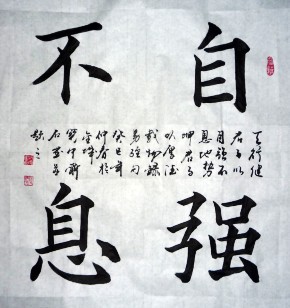 自强
不息
天行健
君子以
自強不
息地势
坤君子
以厚德
載物録
易經句
癸巳年
仲春於